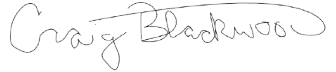 Craig Blackwood